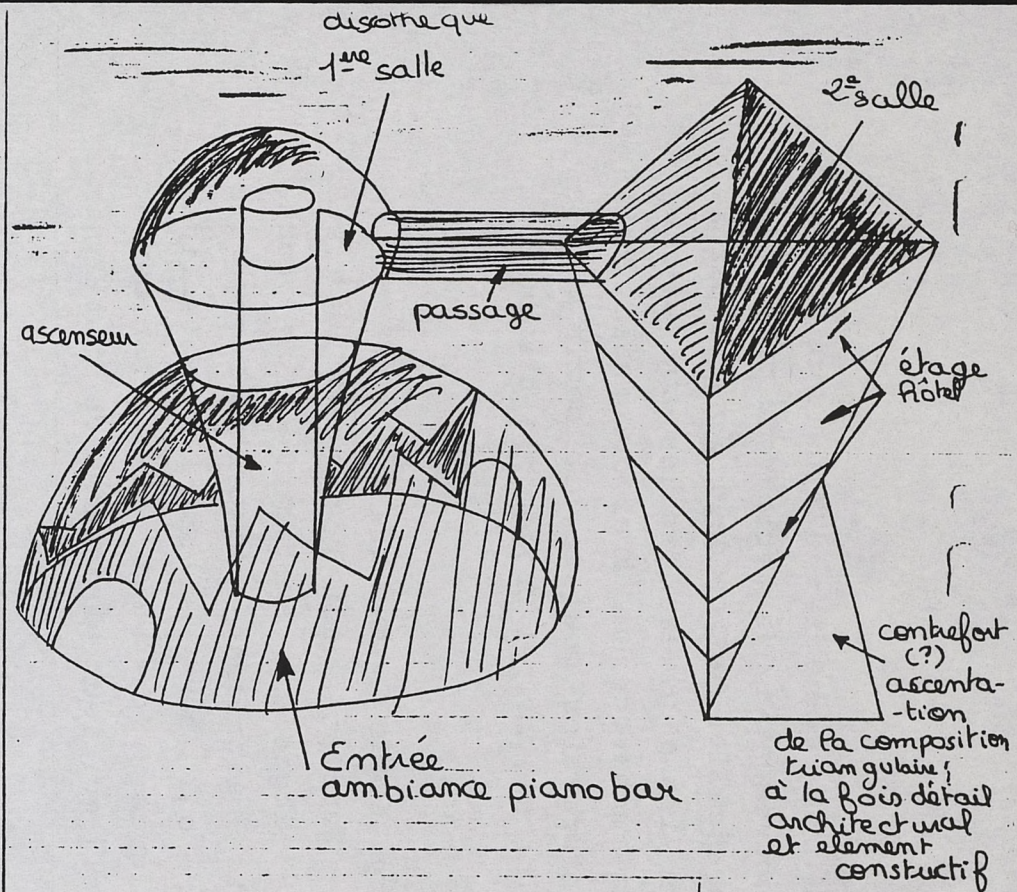 discotheque
1ère salle
2e salle
passage
ascenseur
étage
hôtel
contrefort
(?)
ascenta-
-tion
de la composition
triangulaire;
à la fois détail
architectural
et element
constuctif
Entrée
ambiance pianobar